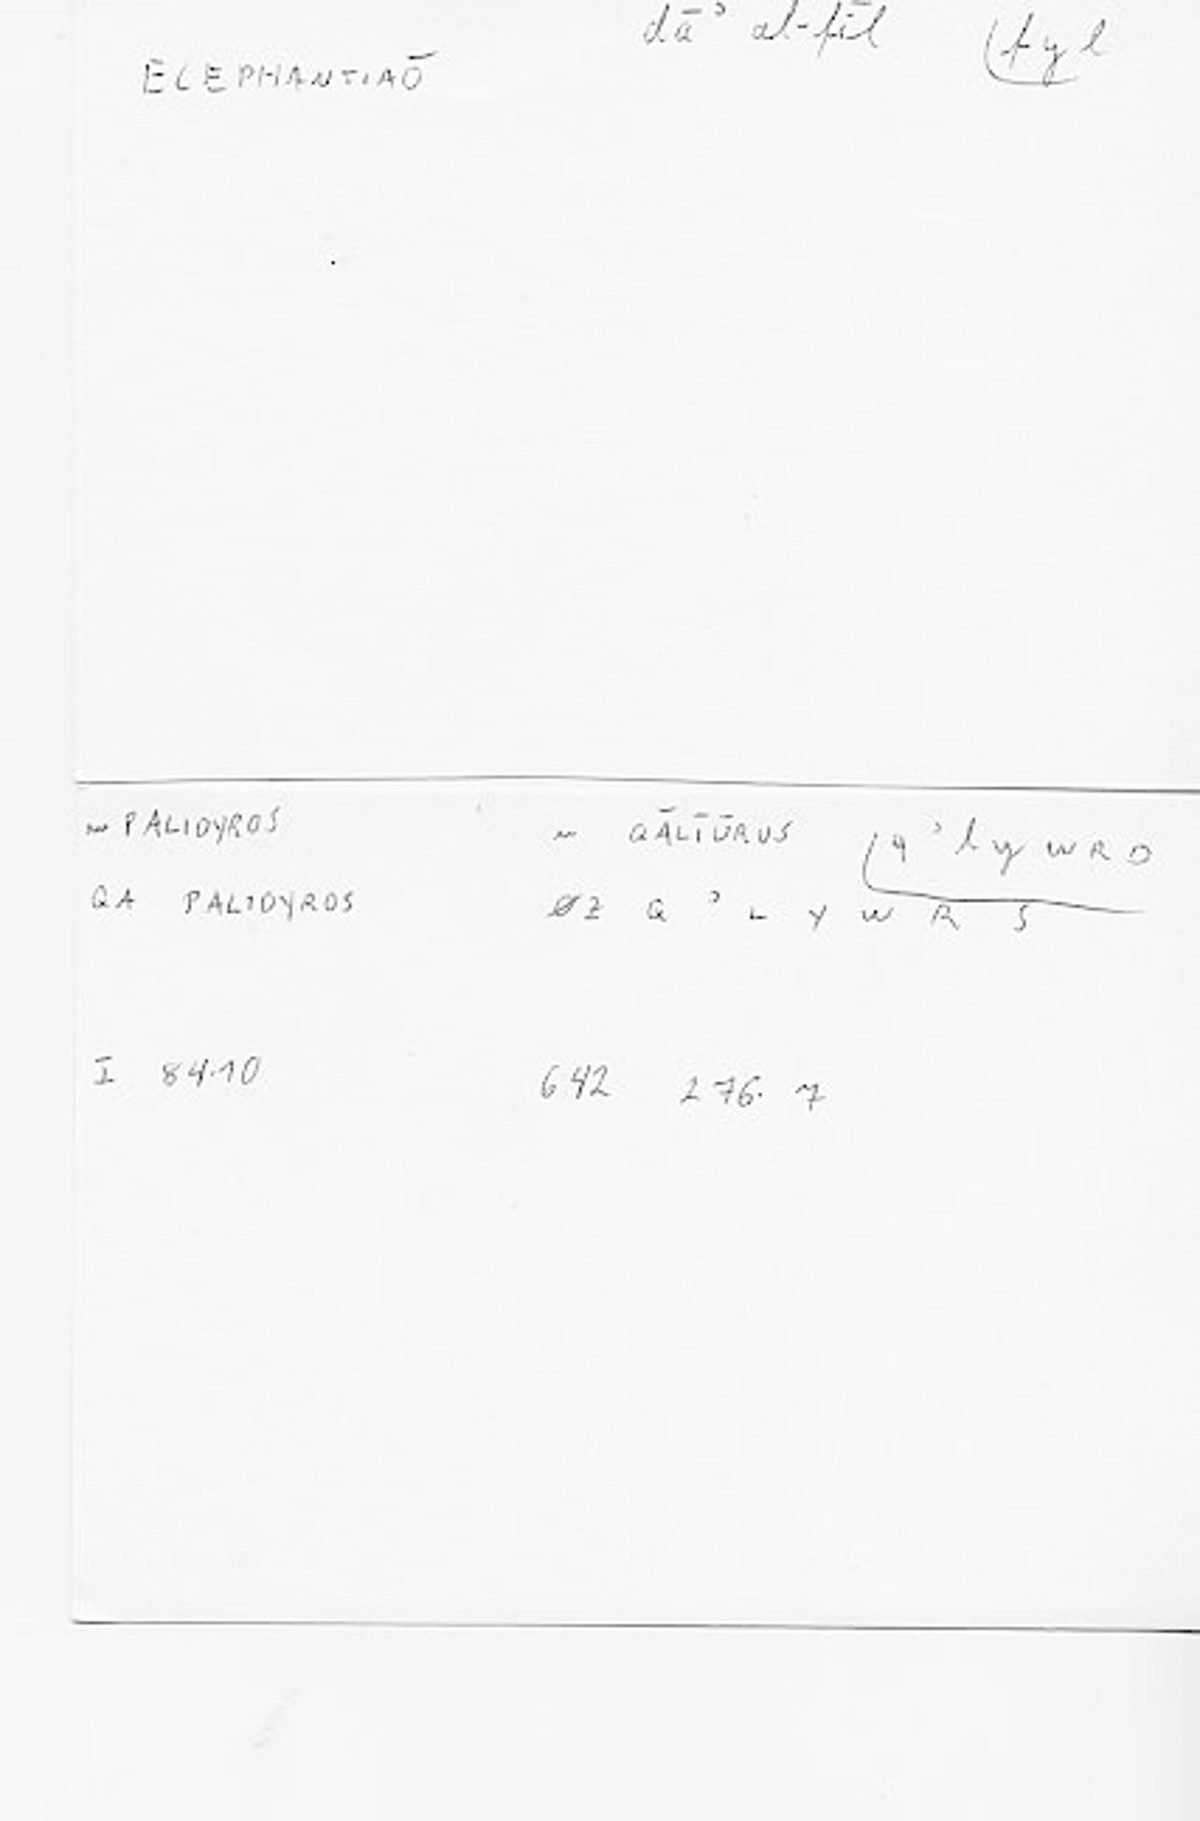 dāʾ al-fīl fyl
ELEPHANTIAŌ
~ PALIDYROS ~ QĀLĪŪRUS qʾlyWRD
QA PALIDYROS ØZ Q ʾ L Y W R S
I 84.10 642 276. 7